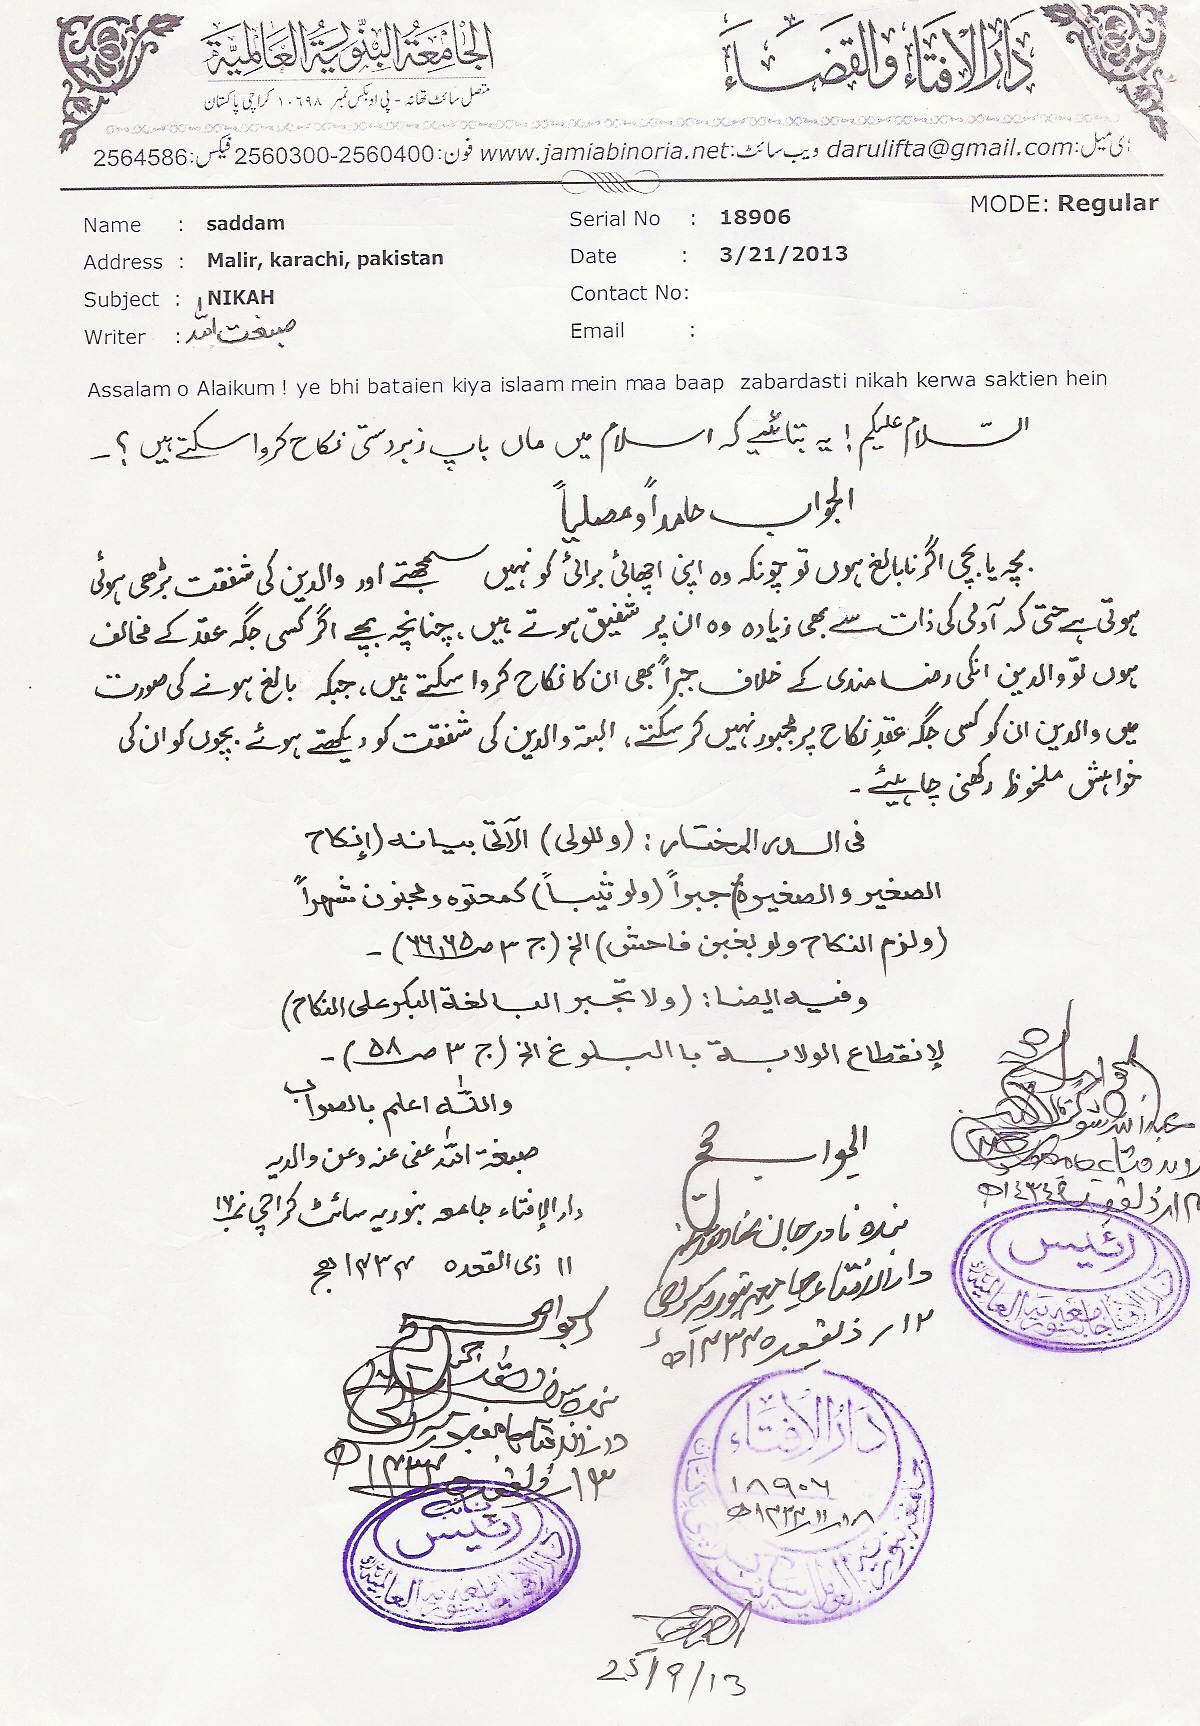 دَارُ الافتاء والقضاء
الجامعۃ البنوریۃ العالمیۃ
متصل سائٹ تھانہ - پی او بکس نمبر ۱۰۶۹۸ کراچی پاکستان
ای میل: darulifta@gmail.com ویب سائٹ: www.jamiabinoria.net فون: 2560300-2560400 فیکس: 2564586
MODE: Regular
Name : saddam
Serial No : 18906
Address : Malir, karachi, pakistan
Date : 3/21/2013
Subject : NIKAH
Contact No:
Writer : صبغت اللہ
Email :
Assalam o Alaikum ! ye bhi bataien kiya islaam mein maa baap zabardasti nikah kerwa saktien hein
السّلام علیکم! یہ بتائیے کہ اسلام میں ماں باپ زبردستی نکاح کروا سکتے ہیں؟۔
الجواب حامداً ومصلیاً
بچہ یا بچی اگر نابالغ ہوں تو چونکہ وہ اپنی اچھائی برائی کو نہیں سمجھتے اور والدین کی شفقت بڑھی ہوئی
ہوتی ہے حتی کہ آدمی کی ذات سے بھی زیادہ وہ ان پر شفیق ہوتے ہیں، چنانچہ بچے اگر کسی جگہ عقد کے مخالف
ہوں تو والدین انکی رضا مندی کے خلاف جبراً بھی ان کا نکاح کروا سکتے ہیں، جبکہ بالغ ہونے کی صورت
میں والدین ان کو کسی جگہ عقدِ نکاح پر مجبور نہیں کر سکتے، البتہ والدین کی شفقت کو دیکھتے ہوئے بچوں کو ان کی
خواہش ملحوظ رکھنی چاہیئے۔
فی الدر المختار: (وللولی) الآتی بیانہ (إنکاح
الصغیر والصغیرۃ) جبراً (ولو ثیباً) کمعتوہ ومجنون شھراً
(ولزم النکاح ولو بغبن فاحش) الخ (ج ۳ ص ۶۵،۶۶)۔
وفیہ ایضا: (ولا تجبر البالغۃ البکر علی النکاح)
لإنقطاع الولایۃ بالبلوغ الخ (ج ۳ ص ۵۸)۔
واللہ اعلم بالصواب
صبغۃ اللہ عفی عنہ وعن والدیہ
دار الإفتاء جامعہ بنوریہ سائٹ کراچی نمبر ۱۶
۱۱ ذی القعدہ ۱۴۳۴ ھج
الجواب صحیح
بندہ نادر جان
دار الافتاء جامعہ بنوریہ کراچی
۱۲ ذیقعدہ ۱۴۳۴ھ
رئیس
دار الافتاء جامعہ بنوریہ العالمیۃ
دَارُ الافتاء
۱۸۹۰۶
۱۸/۱۱/۱۴۳۴ھ
نائب
رئیس
دار الافتاء جامعہ بنوریہ العالمیۃ
25/9/13